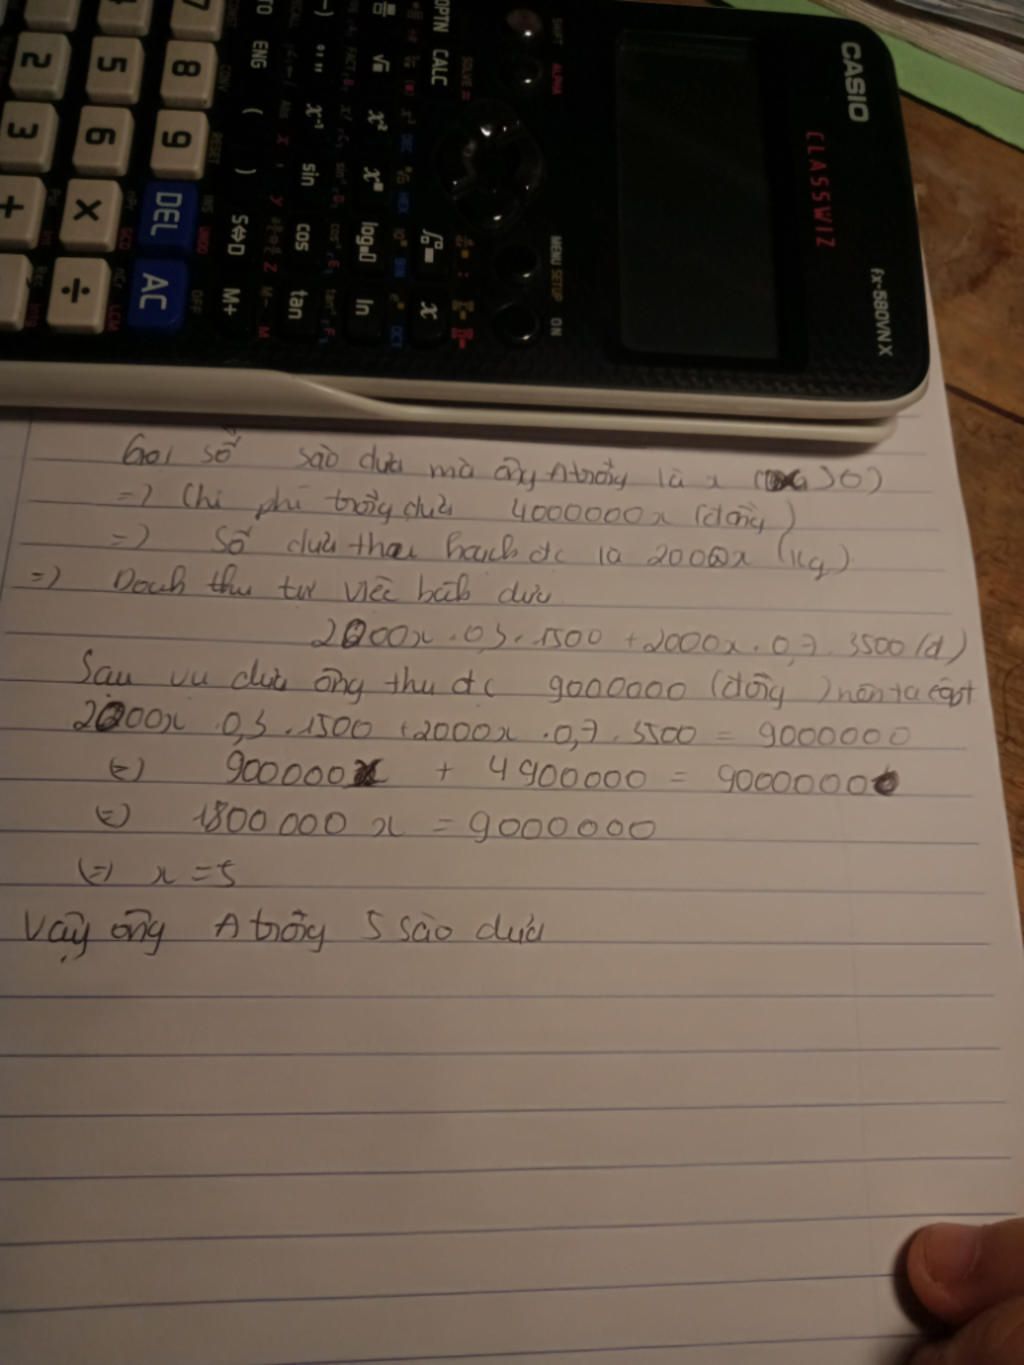 CASIO
CLASSWIZ
fx-580VN X
SHIFT
ALPHA
MENU SETUP
ON
OPTN CALC
SOLVE =
x
√
x²
x■
log■□
ln
(−)
x⁻¹
sin
cos
tan
STO ENG ( ) S⇔D M+
7 8 9 DEL AC
4 5 6 × ÷
2 3 +
Gọi số sào dưa mà ông A trồng là x ( >0)
=) Chi phí trồng dưa 4000000x (đồng)
=) Số dưa thu hoạch đc là 2000x (kg)
=) Doanh thu từ việc bán dưa
2000x . 0,3 . 1500 + 2000x . 0,7 . 3500 (đ)
Sau vụ dưa ông thu đc 9000000 (đồng) nên ta có pt
2000x . 0,3 . 1500 + 2000x . 0,7 . 3500 = 9000000
(=) 900000x + 4900000 = 9000000
(=) 1800000 x = 9000000
(=) x = 5
Vậy ông A trồng 5 sào dưa